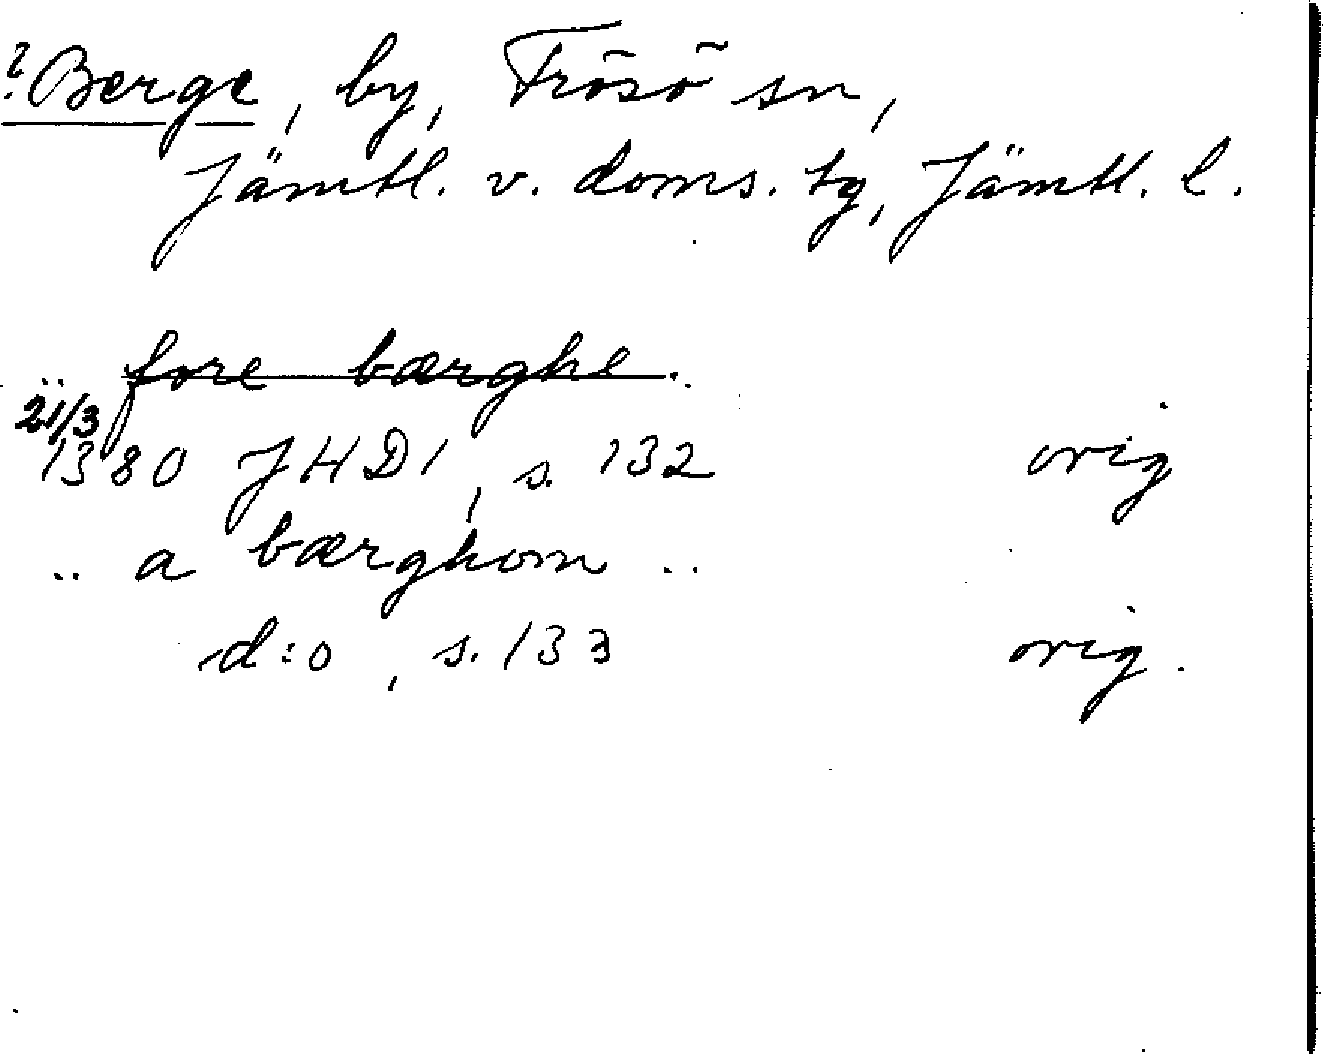 ?Berge, by, Frösö sn,
Jämtl. v. doms. tg, Jämtl. l.
.. fore bærghe ..
21/3
1380 JHD 1, s. 132 orig
.. a bærghom ..
d:o, s. 133 orig.